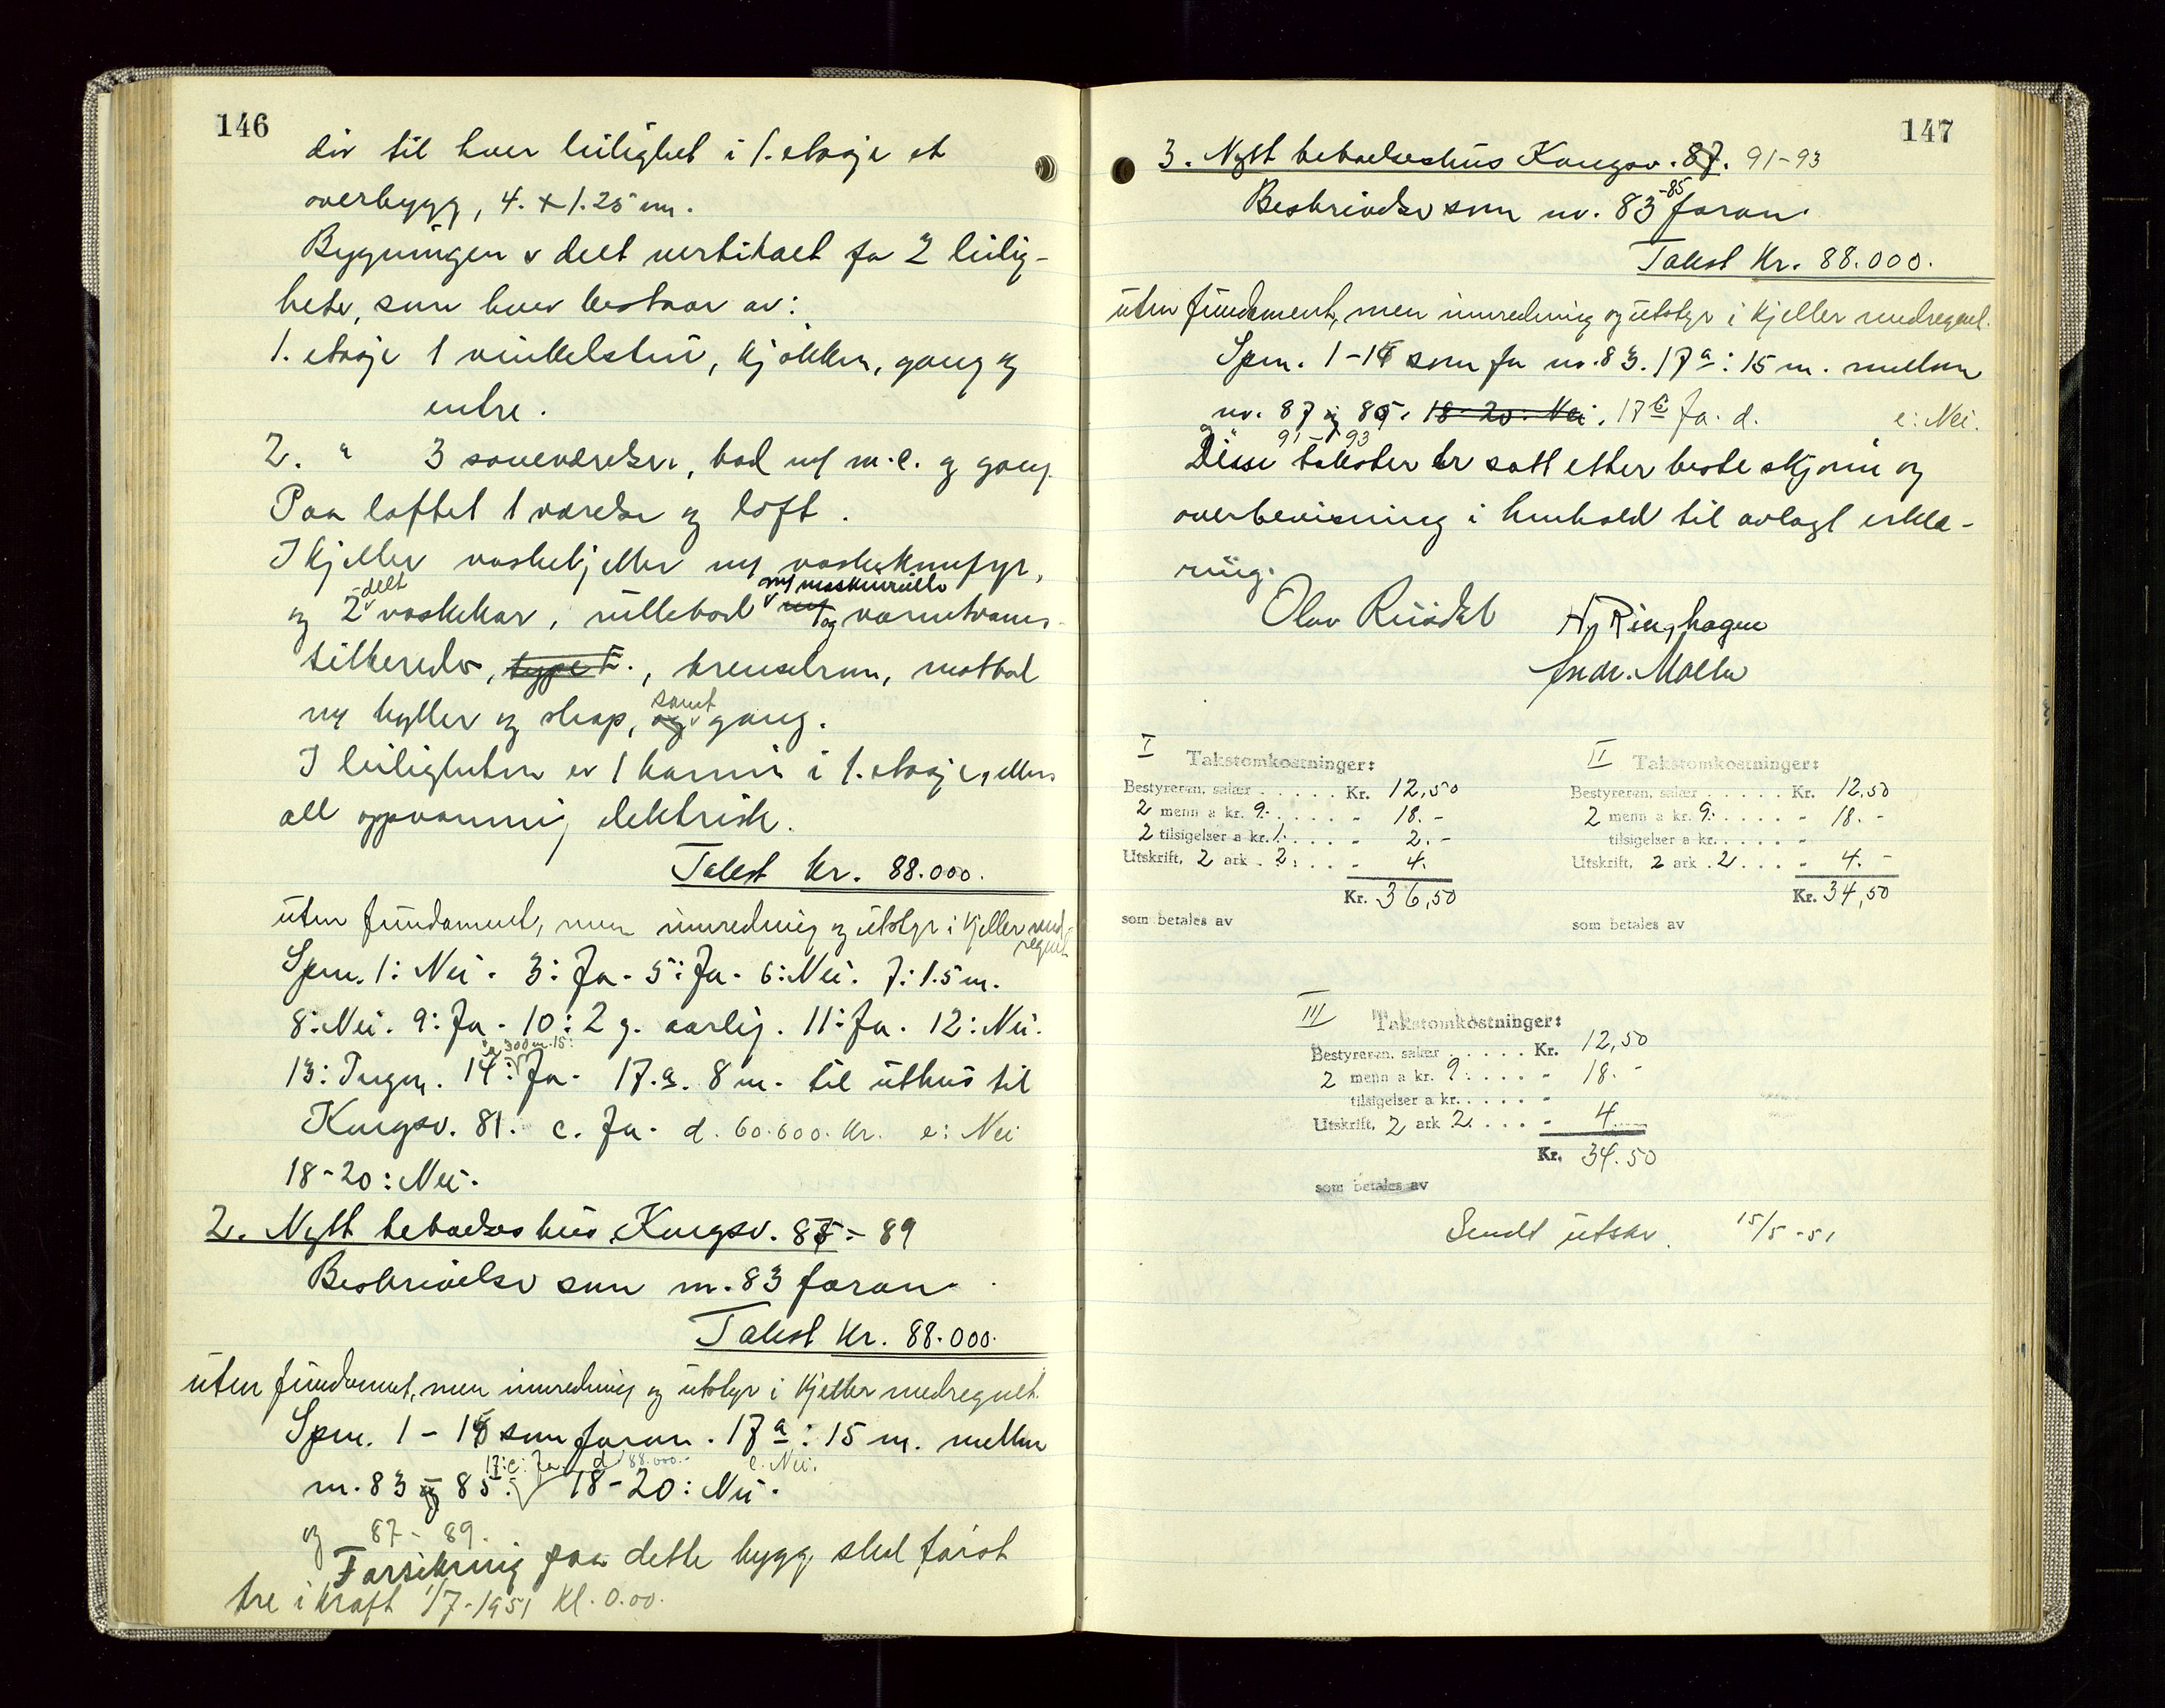 146
dør til hver leilighet i 1. etasje et
overbygg, 4. + 1.25 m.
Bygningen er delt vertikalt for 2 leilig-
heter, som hver bestaar av:
1. etasje 1 vinkelstue, kjøkken, gang og
entre.
2. " 3 soveværelser, bad m/ w.c. og gang.
Paa loftet 1 værelse og loft.
I kjeller vaskekjeller m/ vaskekumfyr,
og 2 -delt vaskekar, rullebod m/ maskinrulle og varmtvanns-
tilbereder, type E., brenselrom, matbod
m/ hyller og skap, og samt gang.
I leiligheten er 1 kamin i 1. etasje, ellers
all oppvarming elektrisk.
Takst kr. 88.000.
uten fundament, men innredning og utstyr i kjeller med-
regnet
Spm. 1: Nei. 3: Ja. 5: Ja. 6: Nei. 7: 1.5 m.
8: Nei. 9: Ja. 10: 2 g. aarlig. 11: Ja. 12: Nei.
13: Ingen. 14: Ja. 300 m. 15: 17.a. 8 m. til uthus til
Kongsv. 81. c. Ja. d. 60.600. kr. e: Nei
18-20: Nei.
2. Nytt beboelseshus Kongsv. 85 - 89
Beskrivelse som nr. 83 foran.
Takst kr. 88.000.
uten fundament, men innredning og utstyr i kjeller medregnet.
Spm. 1 - 15 som foran. 17 a: 15 m. mellom
17: c: Ja. d 88.000.- e. Nei.
nr. 83 og 85. 18-20: Nei.
og 87 - 89.
Forsikring paa dette bygg skal først
tre i kraft 1/7-1951 kl. 0.00.
147
3. Nytt beboelseshus Kongsv. 87. 91-93
Beskrivelse som nr. 83 -85 foran.
Takst kr. 88.000.
uten fundament, men innredning og utstyr i kjeller medregnet.
Spm. 1-15 som for nr. 83. 17 a: 15 m. mellom
nr. 87 og 89. 18-20: Nei. 17 c Ja. d. e: Nei.
og 91 - 93
Disse takster er satt etter beste skjønn og
overbevisning i henhold til avlagt erklæ-
ring.
Olav Rusdal H. Ringhagen
Andr. Moelv
I Takstomkostninger:
Bestyreren, salær . . . . . Kr. 12,50
2 menn a kr. 9. . . . . - 18. -
2 tilsigelser a kr. 1. . . . - 2. -
Utskrift, 2 ark . 2. . . . - 4.
Kr. 36,50
som betales av
II Takstomkostninger:
Bestyreren, salær . . . . . Kr. 12.50
2 menn a kr. 9. . . . . - 18. -
tilsigelser a kr. . . . . -
Utskrift, 2 ark . 2 . . . - 4. -
Kr. 34,50
som betales av
III Takstomkostninger:
Bestyreren, salær . . . . . Kr. 12,50
2 menn a kr. 9. . . . . - 18. -
tilsigelser a kr. . . . . -
Utskrift, 2 ark 2. . . . - 4
Kr. 34.50
som betales av
Sendt utskr. 15/5 -51